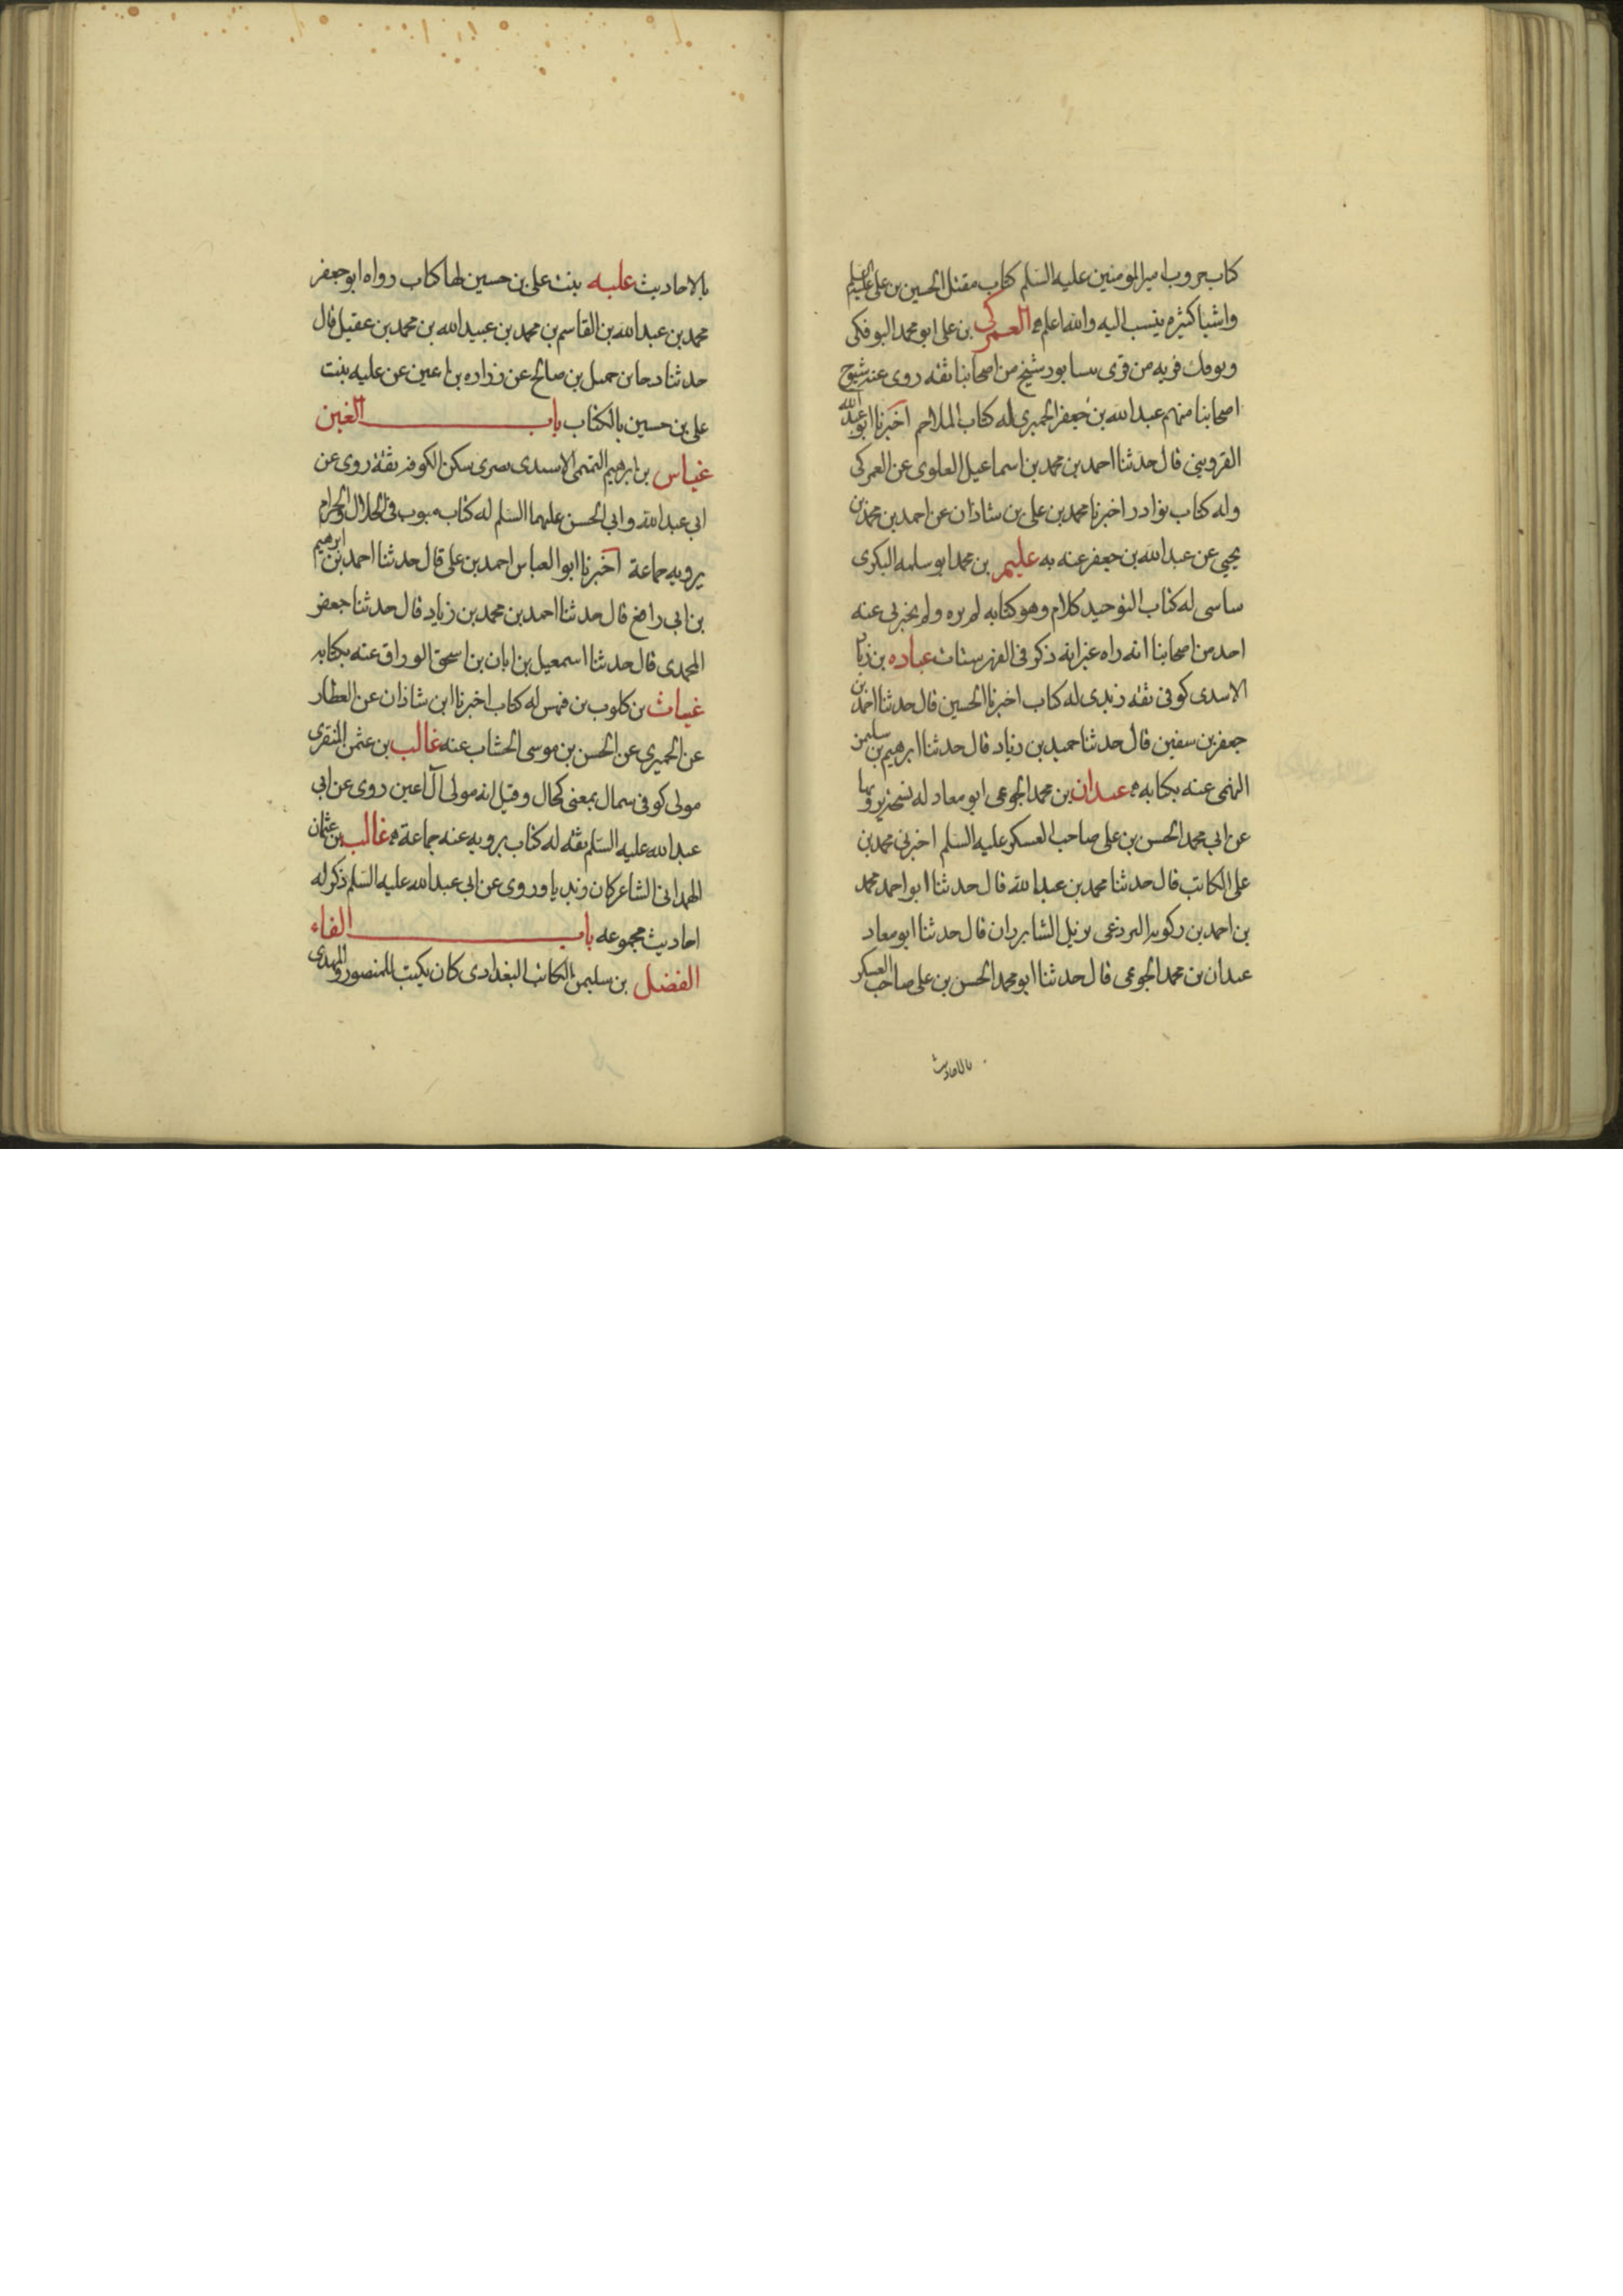 كتاب حروب امير المومنين عليه السلم كتاب مقتل الحسين بن على عليهما السلم
واشيا كثيره ينسب اليه والله اعلم العمركى بن على ابو محمد البوفكى
وبوفك قريه من قرى نيسابور شيخ من اصحابنا ثقه روى عنه شيوخ
اصحابنا منهم عبد الله بن جعفر الحميرى له كتاب الملاحم اخبرنا ابو عبد الله
القزوينى قال حدثنا احمد بن محمد بن اسماعيل العلوى عن العمركى
وله كتاب نوادر اخبرنا محمد بن على بن شاذان عن احمد بن محمد بن
يحيى عن عبد الله بن جعفر عنه به عليم بن محمد ابو سلمه البكرى
ساسى له كتاب التوحيد كلام وهو كتابه لم يره ولم يخبرنى عنه
احد من اصحابنا انه راه غير انه ذكر فى الفهرستات عباده بن زياد
الاسدى كوفى ثقه زيدى له كتاب اخبرنا الحسين قال حدثنا احمد بن
جعفر بن سفين قال حدثنا حميد بن زياد قال حدثنا ابرهيم بن سليمن
النهمى عنه بكتابه عبدان بن محمد الجوعى ابو معاد له نسخه يرويها
عن ابى محمد الحسن بن على صاحب العسكر عليه السلم اخبرنى محمد بن
على الكاتب قال حدثنا محمد بن عبد الله قال حدثنا ابو احمد محمد
بن احمد بن البردعى نزيل الشابردان قال حدثنا ابو معاد
عبدان بن محمد الجوعى قال حدثنا ابو محمد الحسن بن على صاحب العسكر
بالاحاديث
بالاحاديث عليه بنت على بن حسين لها كتاب رواه ابو جعفر
محمد بن عبد الله بن القاسم بن محمد بن عبيد الله بن محمد بن عقيل قال
حدثنا رجا بن جميل بن صالح عن زراره بن اعين عن عليه بنت
على بن حسين بالكتاب باب الغين
غياس بن ابرهيم التميمى الاسيدى بصرى سكن الكوفه ثقة روى عن
ابى عبد الله وابى الحسن عليهما السلم له كتاب مبوب فى الحلال والحرام
يرويه جماعة اخبرنا ابو العباس احمد بن على قال حدثنا احمد بن ابرهيم
بن ابى رافع قال حدثنا احمد بن محمد بن زياد قال حدثنا جعفر
المحمدى قال حدثنا اسمعيل بن ابان بن اسحق الوراق عنه بكتابه
غياث بن كلوب بن فيهس له كتاب اخبرنا ابن شاذان عن العطار
عن الحميرى عن الحسن بن موسى الخشاب عنه غالب بن عثمن المنقرى
مولى كوفى سمال بمعنى كحال وقيل انه مولى آل اعين روى عن ابى
عبد الله عليه السلم ثقه له كتاب يرويه عنه جماعة غالب بن عثمان
الهمدانى الشاعر كان زيديا وروى عن ابى عبد الله عليه السلم ذكر له
احاديث مجموعه باب الفاء
الفضل بن سليمن الكاتب البغدادى كان يكتب للمنصور والمهدى